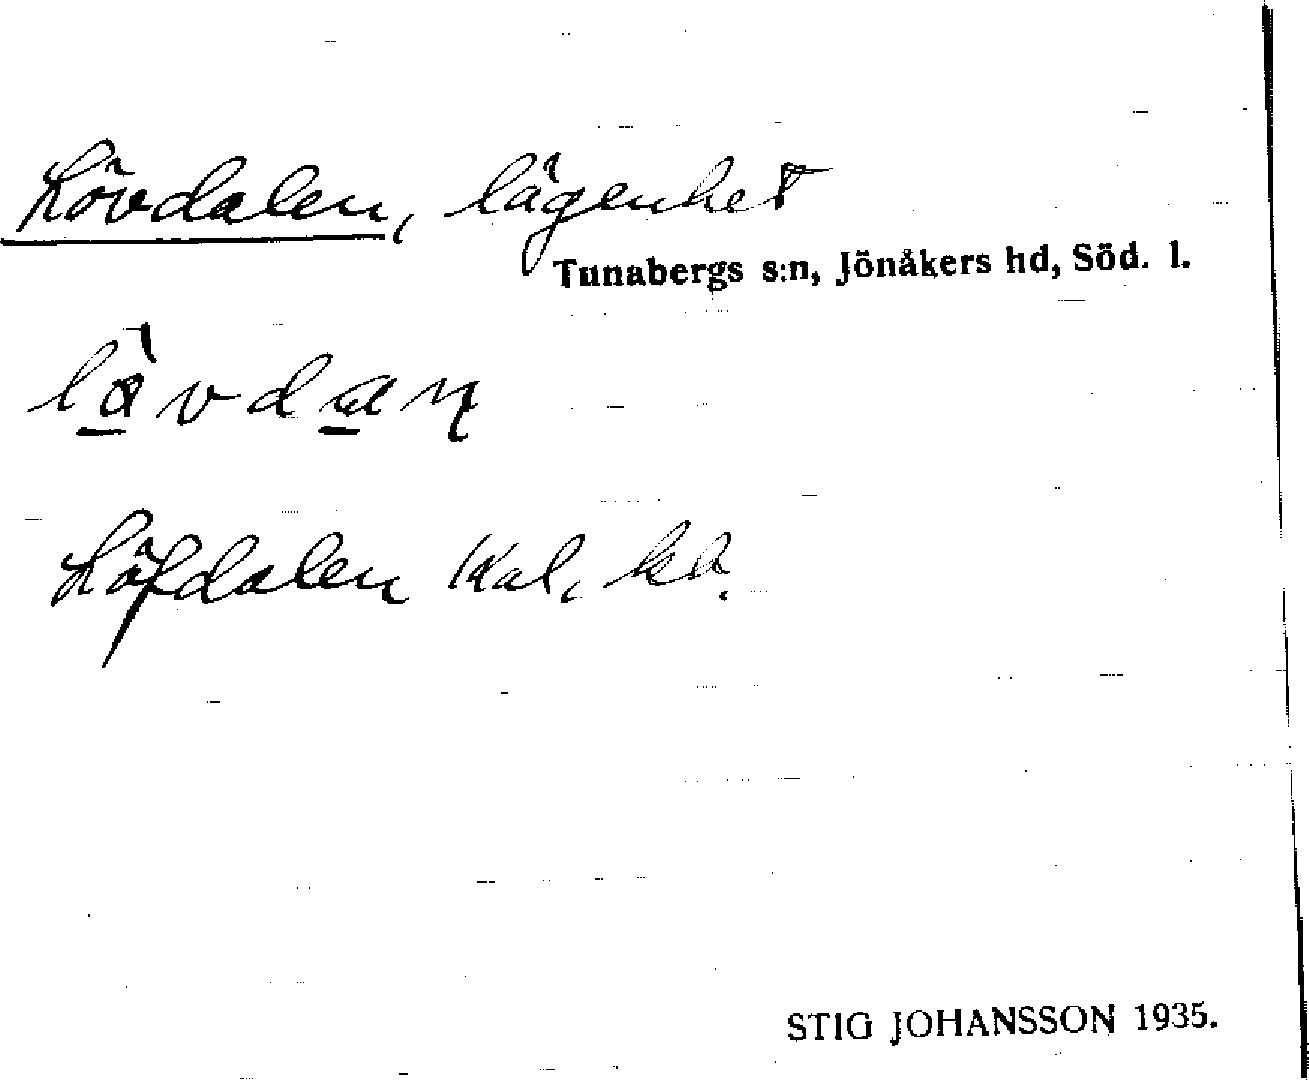 Lövdalen, lägenhet
Tunabergs s:n, Jönåkers hd, Söd. l.
Löfdalen
STIG JOHANSSON 1935.